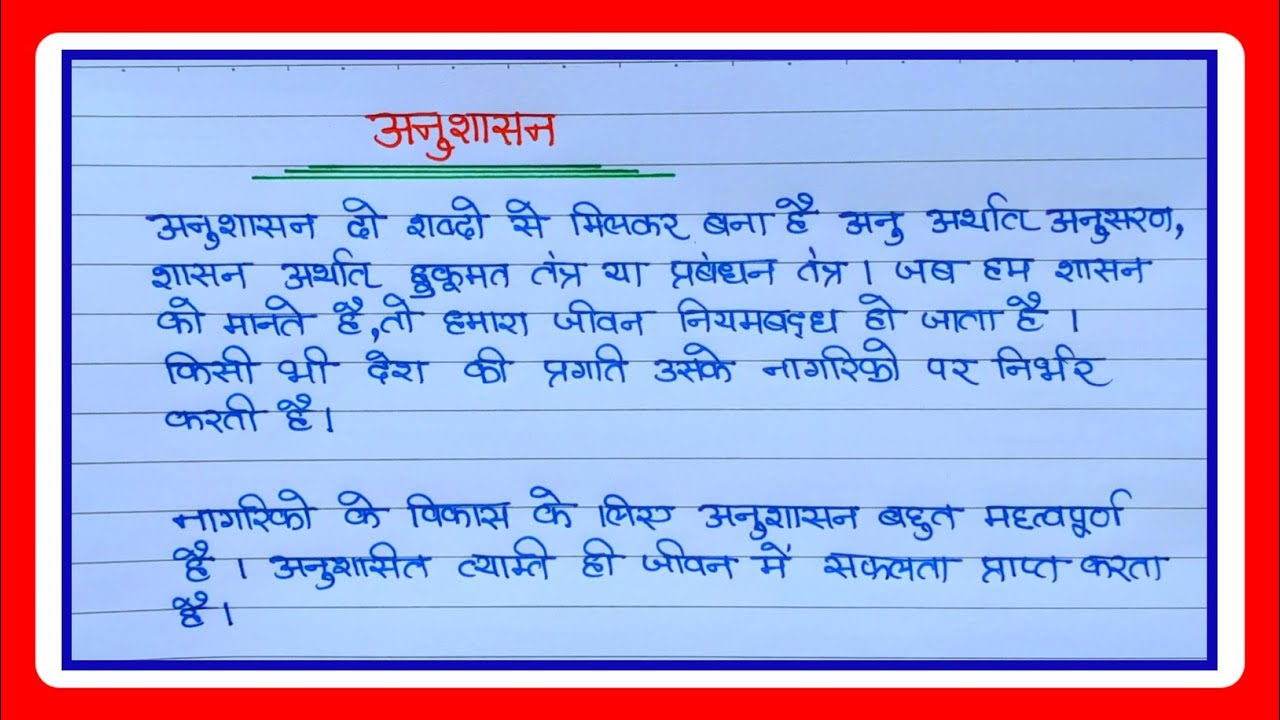 अनुशासन
अनुशासन दो शब्दो से मिलकर बना है अनु अर्थात अनुसरण,
शासन अर्थात हुकूमत तंत्र या प्रबंधन तंत्र । जब हम शासन
को मानते है, तो हमारा जीवन नियमबद्ध हो जाता है ।
किसी भी देश की प्रगति उसके नागरिको पर निर्भर
करती है ।
नागरिको के विकास के लिए अनुशासन बहुत महत्वपूर्ण
है । अनुशासित व्यक्ति ही जीवन में सफलता प्राप्त करता
है ।